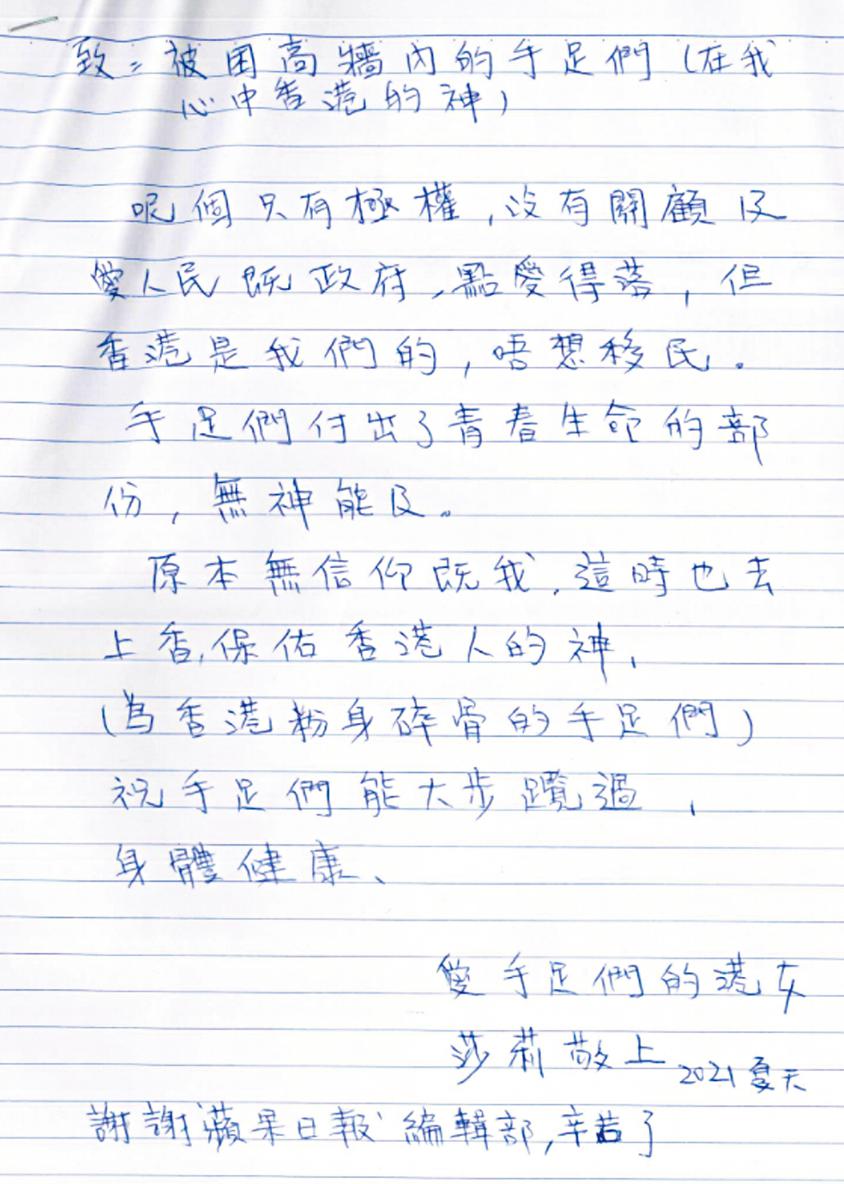 致：被困高牆內的手足們（在我
心中香港的神）
呢個只有極權，沒有關顧及
愛人民既政府，點愛得落，但
香港是我們的，唔想移民。
手足們付出了青春生命的部
份，無神能及。
原本無信仰既我，這時也去
上香，保佑香港人的神，
（為香港粉身碎骨的手足們）
祝手足們能大步躝過，
身體健康、
愛手足們的港女
莎莉敬上 2021夏天
謝謝"蘋果日報"編輯部，辛苦了